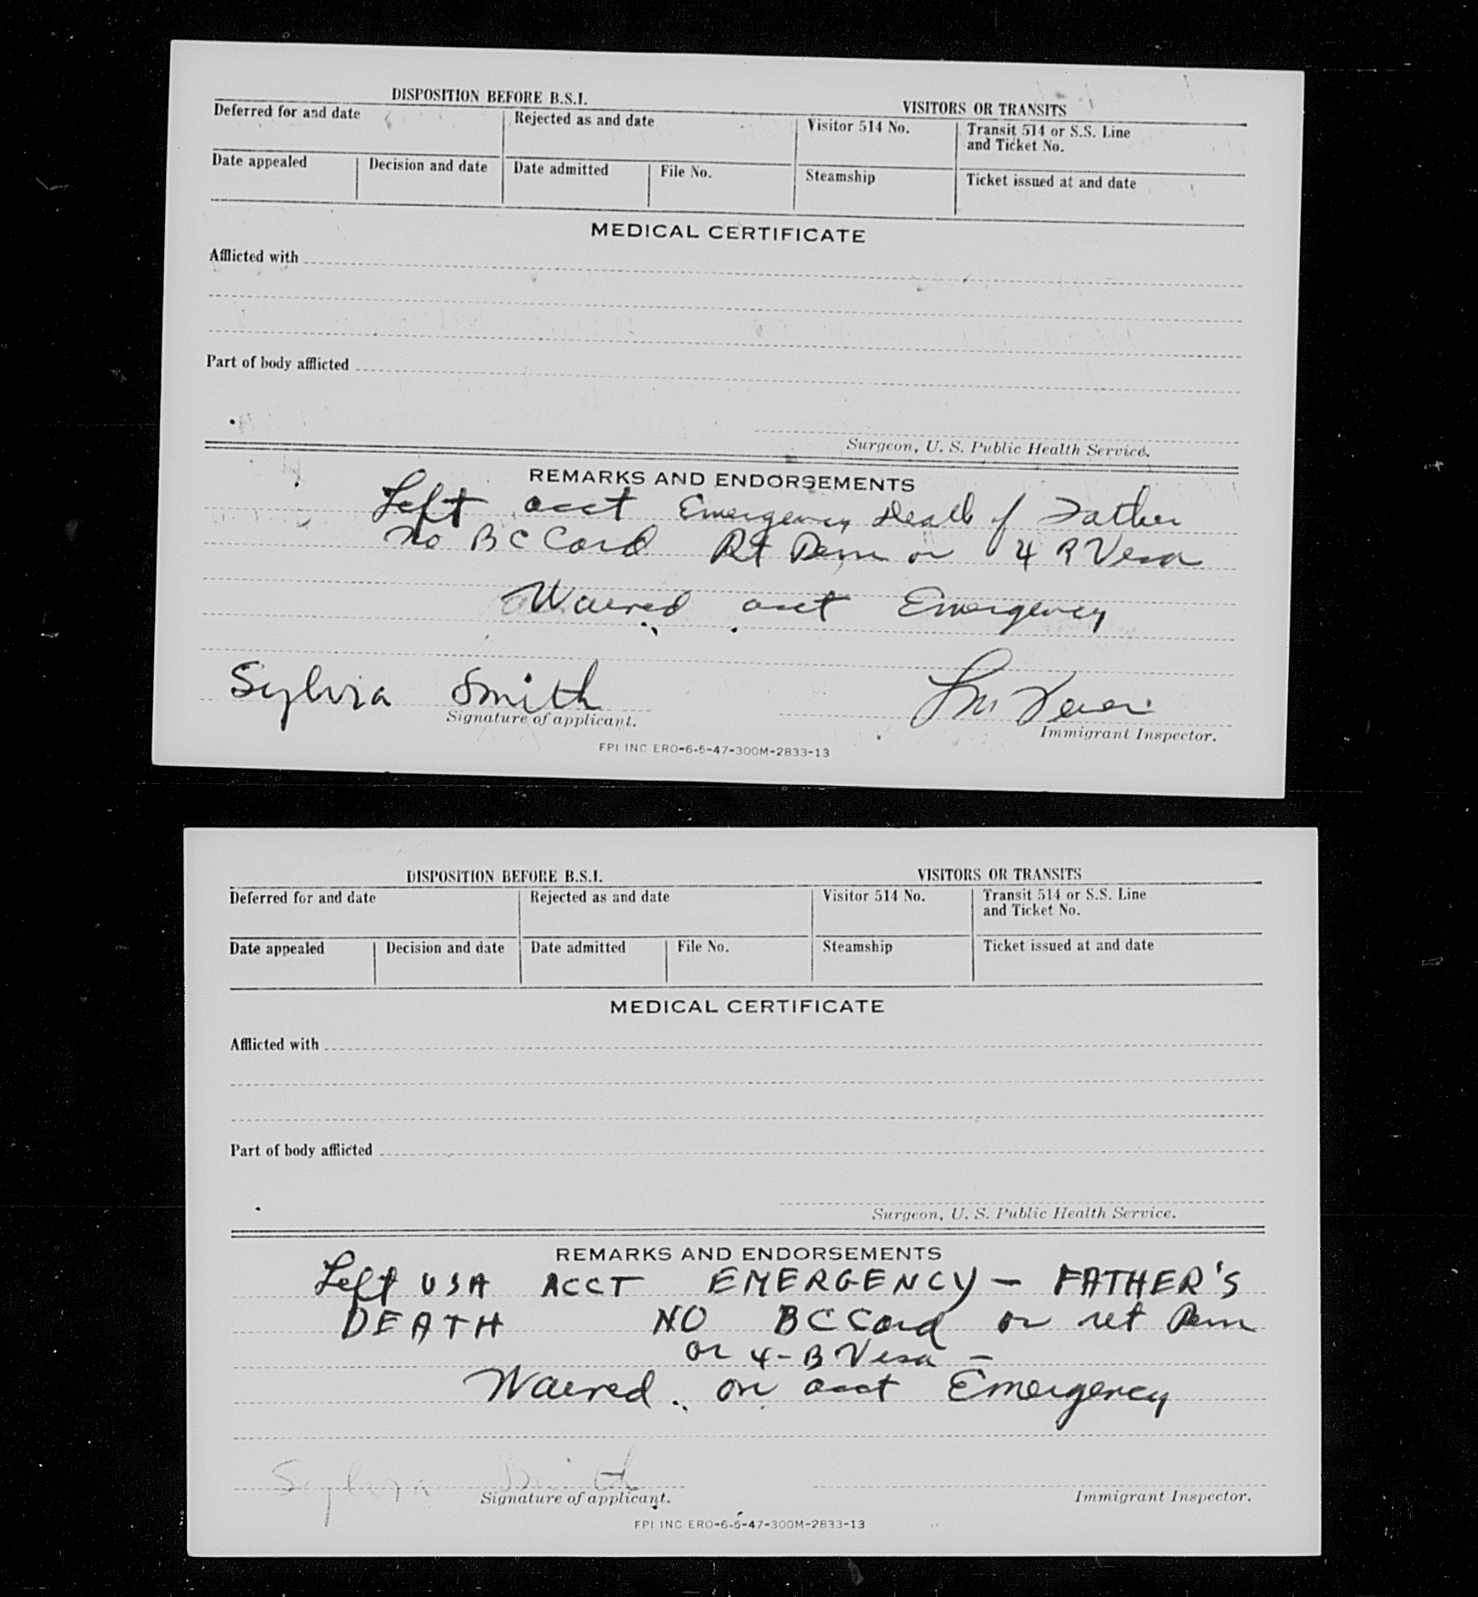 DISPOSITION BEFORE B.S.I.
VISITORS OR TRANSITS
Deferred for and date
Rejected as and date
Visitor 514 No.
Transit 514 or S.S. Line
and Ticket No.
Date appealed
Decision and date
Date admitted
File No.
Steamship
Ticket issued at and date
MEDICAL CERTIFICATE
Afflicted with
Part of body afflicted
Surgeon, U. S. Public Health Service.
REMARKS AND ENDORSEMENTS
Left acct Emergency Death of Father
No BC Card Rt Perm or 4 B Visa
Waived acct Emergency
Sylvia Smith
Signature of applicant.
Immigrant Inspector.
FPI INC ERO-6-5-47-300M-2833-13
DISPOSITION BEFORE B.S.I.
VISITORS OR TRANSITS
Deferred for and date
Rejected as and date
Visitor 514 No.
Transit 514 or S.S. Line
and Ticket No.
Date appealed
Decision and date
Date admitted
File No.
Steamship
Ticket issued at and date
MEDICAL CERTIFICATE
Afflicted with
Part of body afflicted
Surgeon, U. S. Public Health Service.
REMARKS AND ENDORSEMENTS
Left USA ACCT EMERGENCY - FATHER'S
DEATH NO BC Card or ret Perm
or 4-B Visa -
Waived on acct Emergency
Sylvia Smith
Signature of applicant.
Immigrant Inspector.
FPI INC ERO-6-5-47-300M-2833-13